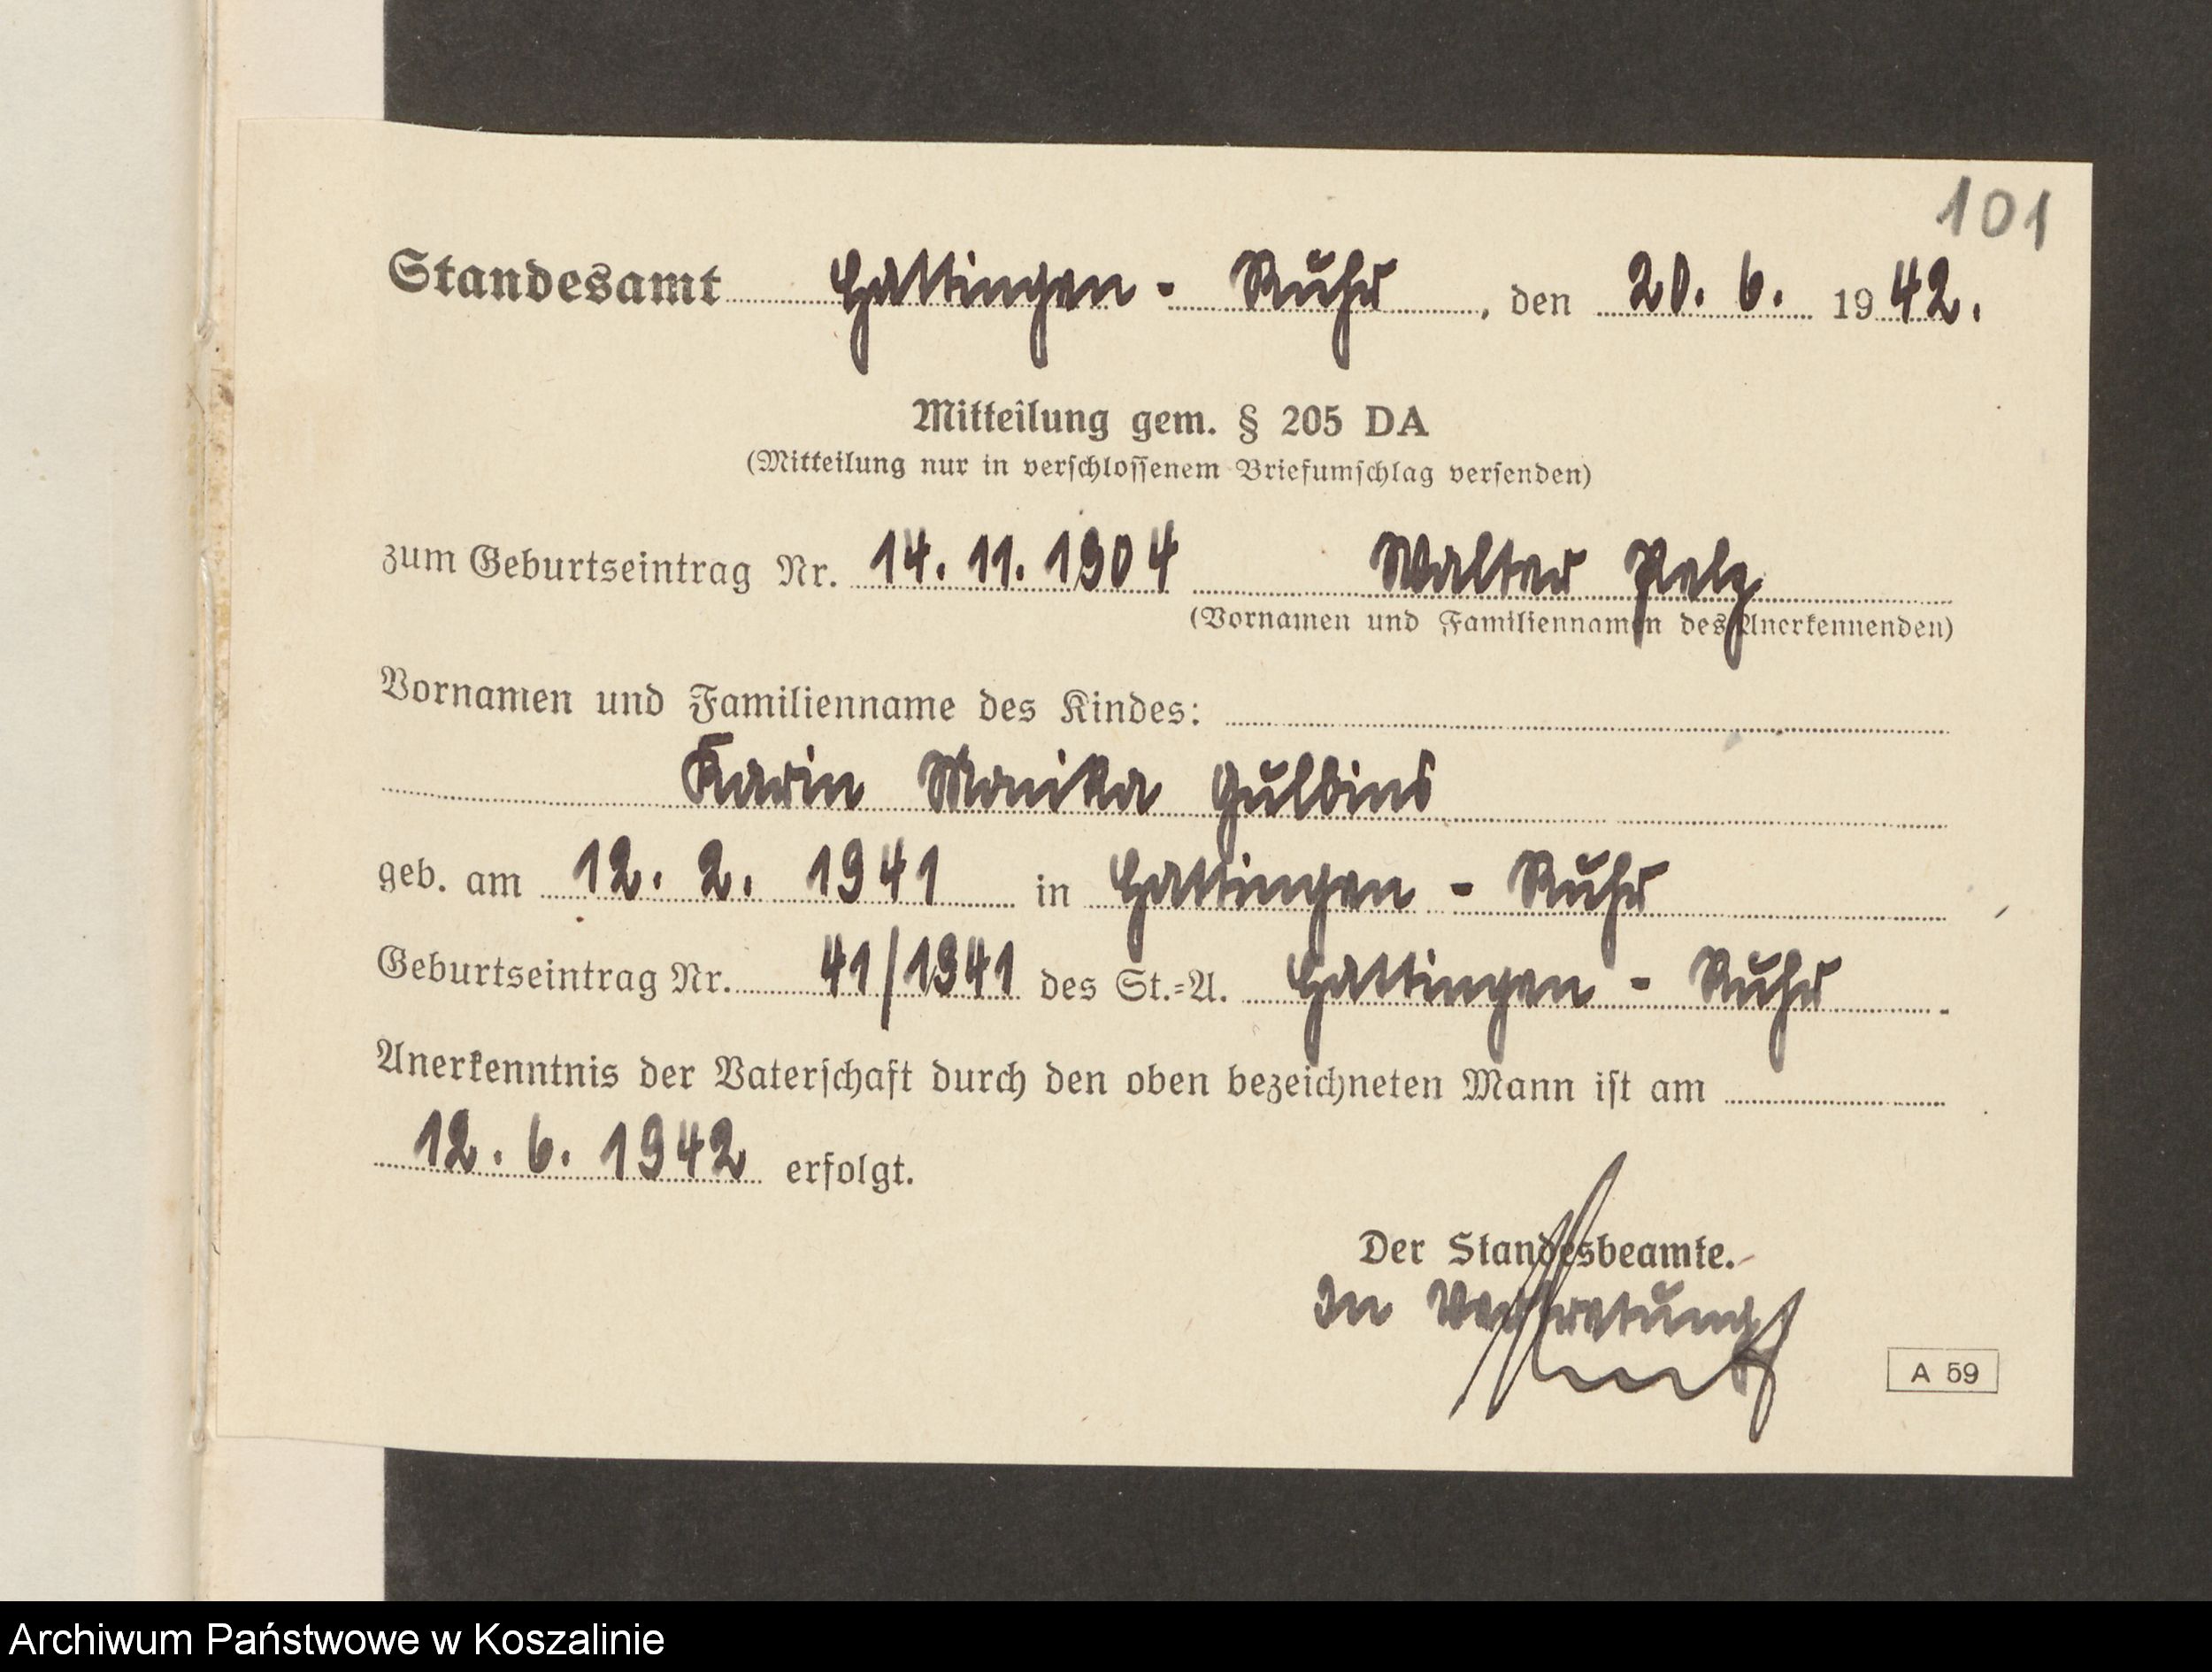 101
Standesamt Hattingen - Ruhr, den 20. 6. 1942.
Mitteilung gem. § 205 DA
(Mitteilung nur in verschlossenem Briefumschlag versenden)
zum Geburtseintrag Nr. 14. 11. 1904 Walter Pelz
(Vornamen und Familiennamen des Anerkennenden)
Vornamen und Familienname des Kindes:
Karin Monika Gulbins
geb. am 12. 2. 1941 in Hattingen - Ruhr
Geburtseintrag Nr. 41/1941 des St.=A. Hattingen - Ruhr.
Anerkenntnis der Vaterschaft durch den oben bezeichneten Mann ist am
12. 6. 1942 erfolgt.
Der Standesbeamte.
In Vertretung
A 59
Archiwum Państwowe w Koszalinie